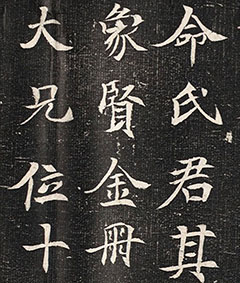 命氏君其
象賢金冊
大兄位十